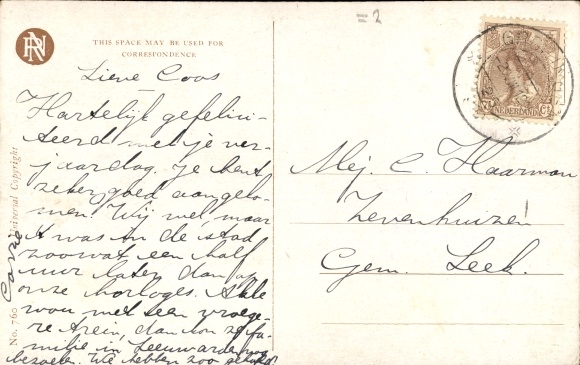 RN
THIS SPACE MAY BE USED FOR
CORRESPONDENCE
Lieve Coos
Hartelijk gefelici-
teerd met je ver-
jaardag. Je bent
zeker goed aangeko-
men. Wij wel, maar
't was in de stad
zoowat een half
uur later dan op
onze horloges.
wou met een vroege-
re trein, dan kon ze fa-
milie in Leeuwarden nog
bezoeken. We hebben zoo
Corrie
No. 760
Universal Copyright
Mej. C. Haarman
Zevenhuizen
Gem. Leek.
NEDERLAND